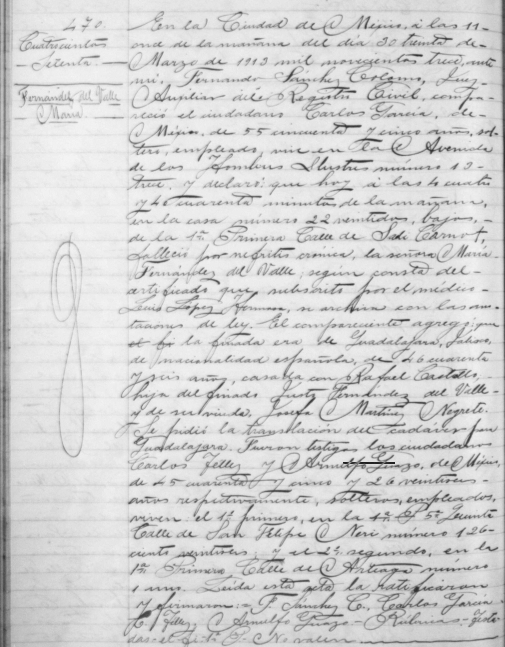 470.
Cuatrocientos
setenta
Fernández del Valle
María.
En la Ciudad de México, á las 11-
once de la mañana del dia 30 treinta de-
Marzo de 1913 mil novecientos trece, ante
mi, Fernando Sánchez Juez
Auxiliar del Registro Civil, compa-
reció el ciudadano Carlos García, de-
México, de 55 cincuenta y cinco años, sol-
tero, empleado, vive en la Avenida
de los Hombres Ilustres número 13-
trece, y declaró: que hoy á las 4 cuatro
y 40 cuarenta minutos de la mañana,
en la casa número 22 veintidos, bajos,-
de la 1ª Primera Calle de Sadi Carnot,
falleció por nefritis crónica, la señora María
Fernández del Valle; según consta del-
certificado que subscribe por el médico-
Luis López Hermosa, se archiva con las ano-
taciones de ley. El compareciente agregó: que
la finada era de Guadalajara, Jalisco,
de nacionalidad española, de 46 cuarenta
y seis años, casada con Rafael
hija del finado Justo Fernández del Valle-
y de su viuda, Josefa Martínez Negrete.
Se pidió la translación del cadáver para
Guadalajara. Fueron testigos los ciudadanos
Carlos Téllez y Arnulfo de México,
de 45 cuarenta y cinco y 26 veintiseis-
años respectivamente, solteros, empleados,
viven: el 1º primero, en la 5ª
Calle de San Felipe Neri número 126-
ciento veintiseis y el 2º segundo, en la
1ª Primera Calle de Arteaga número
1 uno. Leida esta acta la ratificaron
y firmaron.- F. Sánchez C., Carlos García-
C. Téllez Arnulfo Rúbricas-Testa-
das- No valen.